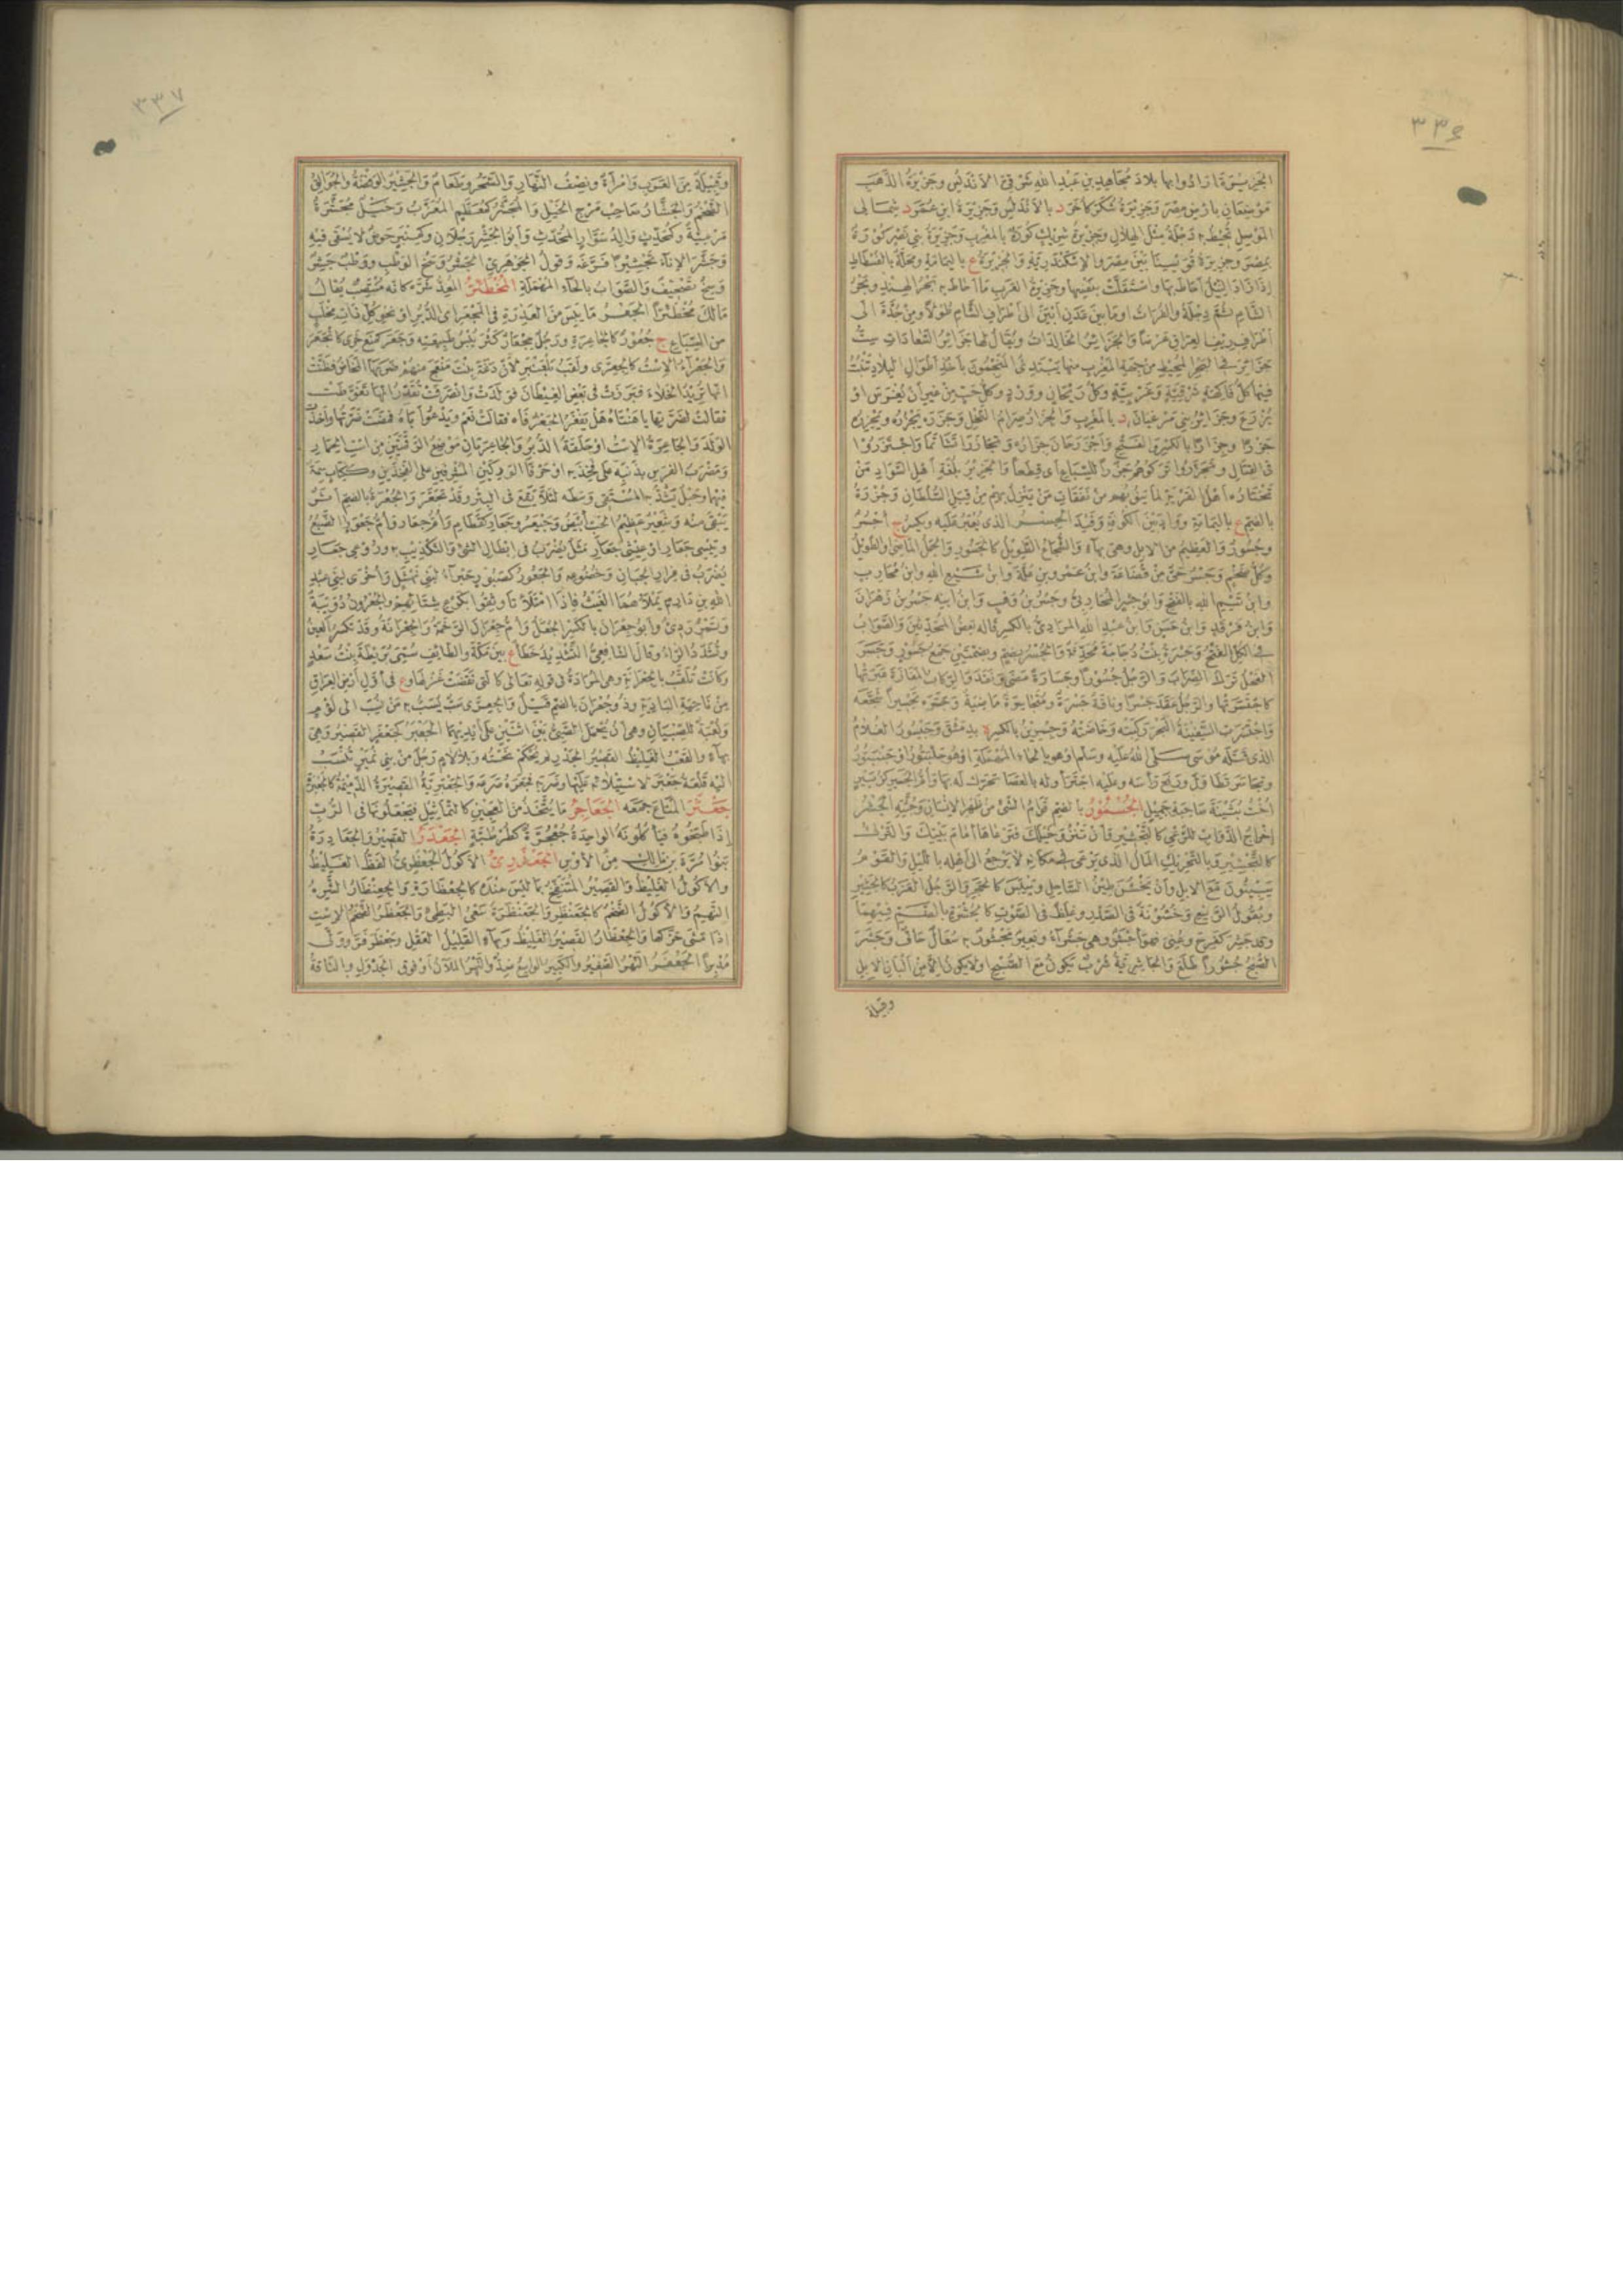 ٣٣٦
الجزيرة ارادوا بها بلاد مجاهد بن عبد الله شرقي الاندلس وجزيرة الذهب
موضعان بارض مصر وجزيرة شكر كاخر د بالاندلس وجزيرة ابن عمر د شمالي
الموصل تحيط به دجلة مثل الهلال وجزيرة شريك كورة بالمغرب وجزيرة بني نصر كورة
بمصر وجزيرة قوسينا بين مصر والاسكندرية والجزيرة ع باليمامة ومحلة بالفسطاط
اذا زاد النيل احاط بها واستقلت بنفسها وجزيرة العرب ما احاط به بحر الهند وبحر
الشام ثم دجلة والفرات او ما بين عدن ابين الى اطراف الشام طولا ومن جدة الى
اطراف ريف العراق عرضا والجزائر الخالدات ويقال لها جزائر السعادات ست
جزائر في البحر المحيط من جهة المغرب منها يبتدئ المنجمون باخذ اطوال البلاد تنبت
فيها كل فاكهة شرقية وغربية وكل ريحان وورد وكل حب من غير ان يغرس او
يزرع وجزائر بني مرغنان د بالمغرب والجزار صرام النخل وجزره يجزره ويجزره
جزرا وجزارا بالكسر والفتح واجزر حان جزاره وتجازرا تشاتما واجتزروا
في القتال وتجزروا تركوهم جزرا للسباع اي قطعا والجزير بلغة اهل السواد من
تختاره اهل القرية لما ينوبهم من نفقات من ينزل بهم من قبل السلطان وجزرة
بالضم ع باليمامة وواد بين الكوفة وفيد الجسر الذي يعبر عليه ويكسر ج اجسر
وجسور والعظيم من الابل وهي بهاء والشجاع الطويل كالجسور والجمل الماضي او الطويل
وكل ضخم وجسر حي من قضاعة وابن عمرو بن علة وابن شيع الله وابن محارب
وابن تيم الله بالفتح وابو جسر المحاربي وجسر بن وهب وابن ابنه جسر بن زهران
وابن فرقد وابن حسن وابن عبد الله المرادي بالكسر قاله بعض المحدثين والصواب
في الكل الفتح وجسرة بنت دجاجة محدثة والجسر بضم وبضمتين جمع جسور وجسر
الفحل ترك الضراب والرجل جسورا وجسارة مضى ونفذ والركاب المفازة عبرتها
كاجتسرتها والرجل عقد جسرا وناقة جسرة ومتجاسرة ماضية وجسره تجسيرا شجعه
واجتسرت السفينة البحر ركبته وخاضته وجسرين بالكسر ة بدمشق وجيسور الغلام
الذي قتله موسى صلى الله عليه وسلم او هو بالحاء المهملة او هو جلبتور او جنبتور
وتجاسر تطاول ورفع راسه وعليه اجترأ وله بالعصا تحرك له بها وام الجسير كزبير
اخت بثينة صاحبة جميل الجسمور بالضم قوام الشئ من ظهر الانسان وجثته الجشر
اخراج الدواب للرعي كالتجشير وان تنزو خيلك فترعاها امام بيتك والترك
كالتجشير وبالتحريك المال الذي يرعى في مكانه لا يرجع الى اهله بالليل والقوم
يبيتون مع الابل وان يخشن طين الساحل وييبس كالحجر والرجل العزب كالجشير
وبقول الربيع وخشونة في الصدر وغلظ في الصوت كالجشرة بالضم فيهما
وقد جشر كفرح وعني فهو اجشر وهي جشراء وبعير مجشور به سعال جاف وجشر
الصبح جشورا طلع والجاشرية شرب يكون مع الصبح او لا يكون الا من البان الابل
وقبيلة
٣٣٧
وقبيلة من العرب وامرأة ونصف النهار والسحر وطعام والجشير الوفضة والجوالق
الضخم والجشار صاحب مرج الخيل والمجشر كمعظم المعزب وخيل مجشرة
مرعية وكمحدث والد سوار المحدث وابو الجشر رجلان وكمنبر حوض لا يسقى فيه
وجشر الاناء تجشيرا فرغه وقول الجوهري الجشر وسخ الوطب ووطب جشر
وسخ تصحيف والصواب بالحاء المهملة المجظئر المعد شره كانه منتصب يقال
مالك مجظئرا الجعر ما يبس من العذرة في المجعر اي الدبر او نجو كل ذات مخلب
من السباع ج جعور كالجاعرة ورجل مجعار كثر يبس طبيعته وجعر كمنع خرئ كانجعر
والجعراء الاست كالجعرى ولقب بلعنبر لان دغة بنت منعج منهم ضربها المخاض فظنت
انها تريد الخلاء فبرزت في بعض الغيطان فولدت وانصرفت تقدر انها تغوطت
فقالت لضرتها يا هنتاه هل يفغر الجعر فاه فقالت نعم ويدعو اباه فمضت ضرتها واخذت
الولد والجاعرة الاست او حلقة الدبر والجاعرتان موضع الرقمتين من است الحمار
ومضرب الفرس بذنبه على فخذيه او حرفا الوركين المشرفين على الفخذين وككتاب سمة
فيهما وحبل يشد به المستقي وسطه لئلا يقع في البئر وقد تجعر والجعرة بالضم اثر
يبقى منه وشعير عظيم الحب ابيض وجيعر وجعار كقطام وام جعار وام جعور الضبع
وتيسي جعار او عيثي جعار مثل يضرب في ابطال الشئ والتكذيب به وروعي جعار
يضرب في فرار الجبان وخضوعه والجعور كصبور خبراء لبني نهشل واخرى لبني عبد
الله بن دارم يملأهما الغيث فاذا امتلأتا وثقوا بكرع شتائهم والجعرور دويبة
وتمر ردئ وابو جعران بالكسر الجعل وام جعران الرخمة والجعرانة وقد تكسر العين
وتشدد الراء وقال الشافعي التشديد خطأ ع بين مكة والطائف سمي بريطة بنت سعد
وكانت تلقب بالجعرانة وهي المرادة في قوله تعالى كالتي نقضت غزلها وع في اول ارض العراق
من ناحية البادية وذو جعران بالضم قيل والجعرى سب يسب به من نسب الى لؤم
ولعبة للصبيان وهي ان يحمل الصبي بين اثنين على ايديهما الجعبر كجعفر القصير وهي
بهاء والقعب الغليظ القصير الجدر لم يحكم نحته وبلا لام رجل من بني نمير تنسب
اليه قلعة جعبر لاستيلائه عليها وضربه فجعبره صرعه والجعبرية القصيرة الدميمة كالجعبرة
جعثر المتاع جمعه الجعاجر ما يتخذ من العجين كالتماثيل فيجعلونها في الرب
اذا طبخوه فيأكلونه الواحدة جعجرة كطرطبة الجعدر القصير والجعادرة
بنوا مرة بن مالك من الاوس الجعذري الاكول الجعظري الفظ الغليظ
والاكول الغليظ والقصير المتنفج بما ليس عنده كالجعظارة والجعنظار الشره
النهيم والاكول الضخم كالجعنظر والجعظرة سعي البطئ والجعظر الضخم الاست
اذا مشى حركها والجعظار القصير الغليظ وبهاء القليل العقل وجعظر فر وولى
مدبرا الجعفر النهر الصغير والكبير الواسع ضد والنهر الملآن او فوق الجدول والناقة